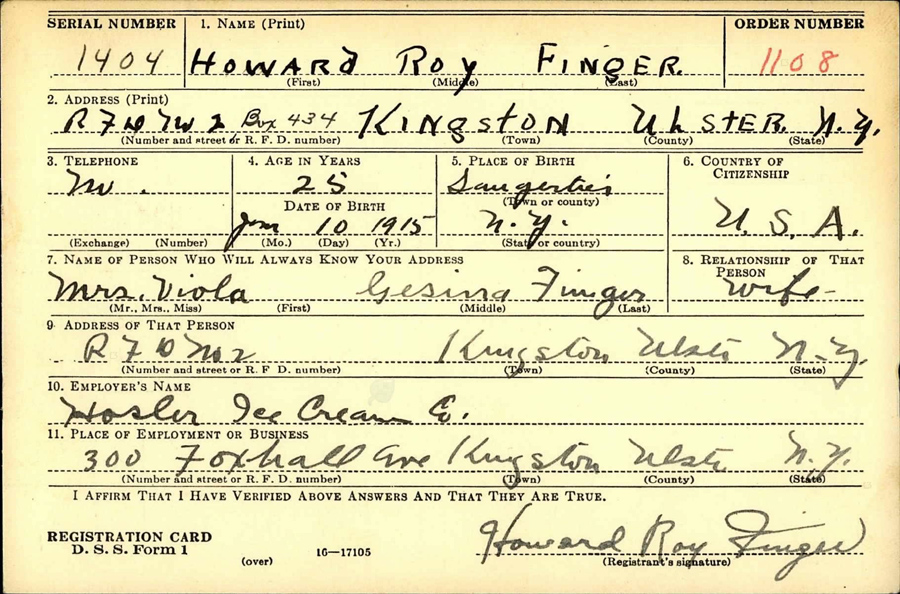 SERIAL NUMBER 1. NAME (Print) ORDER NUMBER
1404 HOWARD ROY FINGER. 1108
(First) (Middle) (Last)
2. ADDRESS (Print)
R F D No 2 Box 434 KINGSTON ULSTER. N.Y.
(Number and street or R. F. D. number) (Town) (County) (State)
3. TELEPHONE 4. AGE IN YEARS 5. PLACE OF BIRTH 6. COUNTRY OF CITIZENSHIP
No. 25 Saugerties
DATE OF BIRTH (Town or county)
Jan 10 1915 N.Y. U. S. A.
(Exchange) (Number) (Mo.) (Day) (Yr.) (State or country)
7. NAME OF PERSON WHO WILL ALWAYS KNOW YOUR ADDRESS 8. RELATIONSHIP OF THAT PERSON
Mrs. Viola Gesina Finger wife
(Mr., Mrs., Miss) (First) (Middle) (Last)
9. ADDRESS OF THAT PERSON
R F D No 2 Kingston Ulster N.Y.
(Number and street or R. F. D. number) (Town) (County) (State)
10. EMPLOYER'S NAME
Hosler Ice Cream Co.
11. PLACE OF EMPLOYMENT OR BUSINESS
300 Foxhall Ave Kingston Ulster N.Y.
(Number and street or R. F. D. number) (Town) (County) (State)
I AFFIRM THAT I HAVE VERIFIED ABOVE ANSWERS AND THAT THEY ARE TRUE.
REGISTRATION CARD
D. S. S. Form 1 Howard Roy Finger
(over) 16—17105 (Registrant's signature)